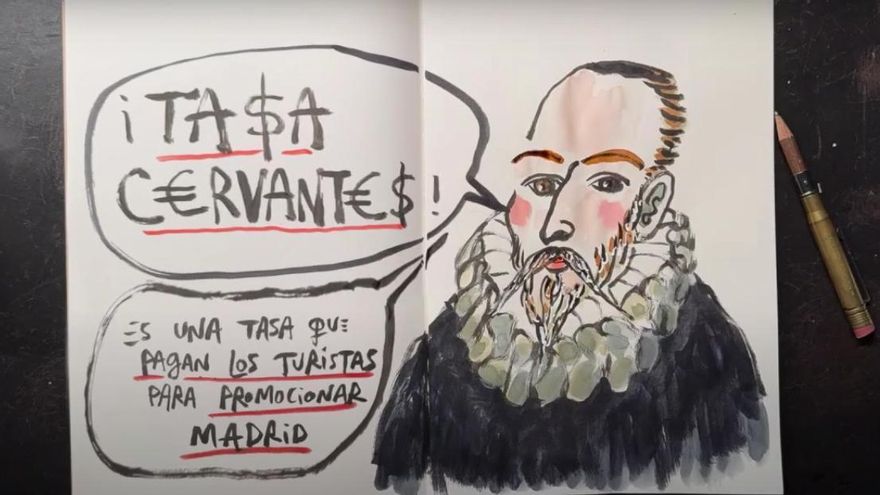 ¡TA$A
C€RVANT€$!
ES UNA TASA QUE
PAGAN LOS TURISTAS
PARA PROMOCIONAR
MADRID